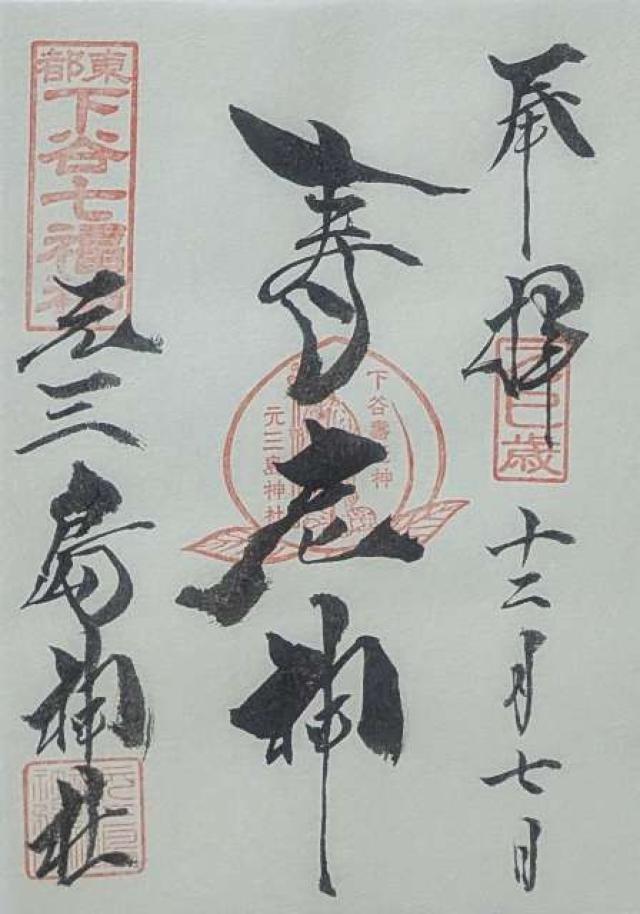 奉拝
乙巳歳
十二月七日
寿老神
下谷寿老神
元三島神社
東都
下谷七福神
元三島神社